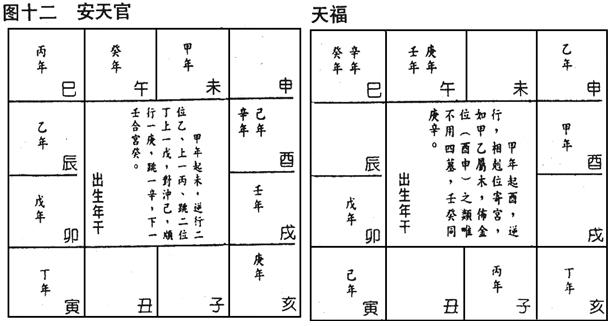 图十二 安天官
丙年 巳
癸年 午
甲年 未
申
乙年 辰
己年
辛年 酉
戊年 卯
壬年 戌
丁年 寅
丑
子
庚年 亥
甲年起未,逆行二
位乙、上一丙、跳二位
丁上一戊,對沖己,順
行一庚,跳一辛,下一
壬合宮癸。
出生年干
天福
辛年
癸年 巳
庚年
壬年 午
未
乙年 申
辰
甲年 酉
戊年 卯
戌
己年 寅
丑
丙年 子
丁年 亥
甲年起酉,逆
行,相剋位寄宮,
如甲乙屬木,佈金
位(酉申)之類唯
不用四墓,壬癸同
庚辛。
出生年干